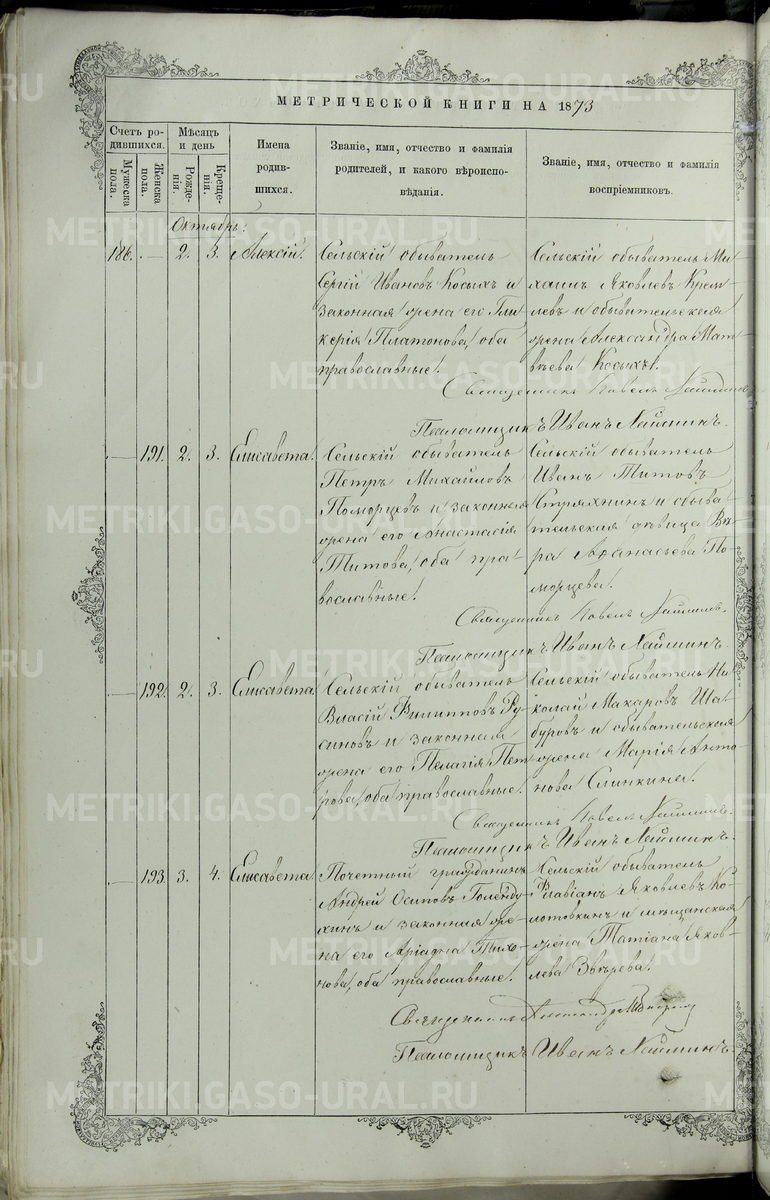 МЕТРИЧЕСКОЙ КНИГИ НА 1873
Счетъ родившихся.
Мужеска пола.
Женска пола.
Мѣсяцъ и день
Рожденія.
Крещенія.
Имена родившихся.
Званіе, имя, отчество и фамилія родителей, и какого вѣроисповѣданія.
Званіе, имя, отчество и фамилія воспріемниковъ.
Октябрь.
186. — 2. 3. Алексій.
Сельскій обыватель
Сергій Ивановъ Косыхъ и
законная жена его Гли-
керія Платонова, оба
православные.
Сельскій обыватель Ми-
хаилъ Яковлевъ Крем-
левъ и обывательская
жена Александра Мат-
вѣева Косыхъ.
Священникъ Павелъ
Псаломщикъ Иванъ Лаймин.
— 191. 2. 3. Елисавета.
Сельскій обыватель
Петръ Михайловъ
Поморцевъ и законная
жена его Анастасія
Титова, оба пра-
вославные.
Сельскій обыватель
Иванъ Титовъ
Стряхнинъ и обыва-
тельская дѣвица Вѣ-
ра Аѳанасьева По-
морцева.
Священникъ Павелъ
Псаломщикъ Иванъ Лайминъ
— 192. 2. 3. Елисавета
Сельскій обыватель
Власій Филипповъ Ру-
синовъ и законная
жена его Пелагія Пет-
рова, оба православные.
Сельскій обыватель Ни-
колай Макаровъ Ша-
буровъ и обывательская
жена Марія Анто-
нова Слинкина.
Священникъ Павелъ
Псаломщикъ Иванъ Лайминъ.
— 193. 3. 4. Елисавета
Почетный гражданинъ
Андрей Осиповъ Голенду-
хинъ и законная же-
на его Аріадна Тихо-
нова, оба православные.
Сельскій обыватель
Флавіанъ Яковлевъ Ко-
лотовкинъ и мѣщанская
жена Татіана Яков-
лева Звѣрева.
Священникъ Александръ
Псаломщикъ Иванъ Лайминъ.
METRIKI.GASO-URAL.RU